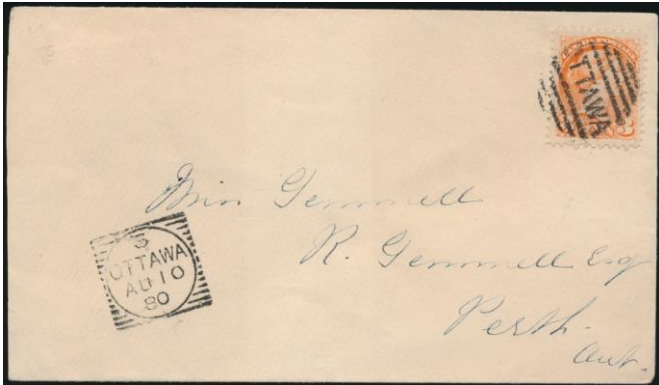 OTTAWA
Miss Gemmell
R. Gemmell Esq
Perth.
Ont.
3
OTTAWA
AU 10
80